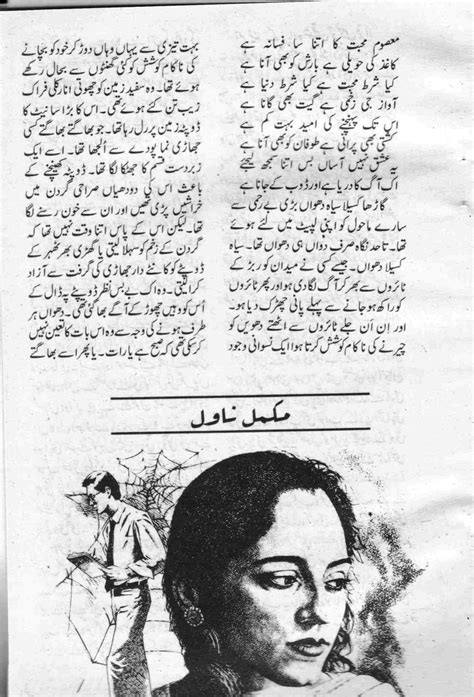 معصوم محبت کا اتنا سا فسانہ ہے
کاغذ کی حویلی ہے بارش کو بھی آنا ہے
کیا شرط محبت ہے کیا شرط دنیا ہے
آواز بھی زخمی ہے گیت بھی گانا ہے
اس تک پہنچنے کی امید بہت کم ہے
کشتی بھی پرانی ہے طوفان کو بھی آنا ہے
یہ عشق نہیں آساں بس اتنا سمجھ لیجئے
اک آگ کا دریا ہے اور ڈوب کے جانا ہے
گاڑھا کسیلا سیاہ دھواں بڑی بے رحمی سے
سارے ماحول کو اپنی لپیٹ میں لئے ہوئے
تھا۔ تاحد نگاہ صرف دھواں ہی دھواں تھا۔ سیاہ
کسیلا دھواں۔ جیسے کسی نے میدان کو ربڑ کے
ٹائروں سے بھر کر آگ لگا دی ہو اور پھر ٹائروں
کو راکھ ہو جانے سے پہلے پانی چھڑک دیا ہو۔
اور اِن اَن جلے ٹائروں سے اٹھتے دھویں کو
چیرنے کی ناکام کوشش کرتا ہوا ایک نسوانی وجود
بہت تیزی سے یہاں وہاں دوڑ کر خود کو بچانے
کی ناکام کوشش کو کئی گھنٹوں سے بحال رکھے
ہوئے تھا۔ وہ سفید زمین کو چھوتی انارکلی فراک
زیب تن کئے ہوئے تھی۔ اس کا بڑا سا نیٹ کا
دوپٹہ زمین پر رل رہا تھا۔ جو بھاگتے بھاگتے کسی
جھاڑی نما پودے سے الجھا تھا۔ اسے ایک
زبردست قسم کا جھٹکا لگا تھا۔ دوپٹہ کھینچنے کے
باعث اس کی دودھیاں صراحی گردن میں
خراشیں پڑی تھیں اور ان سے خون رسنے لگا
تھا۔ لیکن اس کے پاس اتنا وقت نہیں تھا کہ
گردن کے زخم کو سہلا لیتی یا گھڑی بھر ٹھہر کے
دوپٹے کو کانٹے دار جھاڑی کی گرفت سے آزاد
کرا لیتی۔ وہ اک بے بس نظر دوپٹے پہ ڈال کے
اُس کو وہیں چھوڑ کے آگے بھاگی تھی۔ دھواں ہر
طرف ہونے کی وجہ سے وہ اس بات کا تعین نہیں
کر سکی تھی کہ صبح ہے یا رات۔ یا پھر اسے بھاگتے
مکمل ناول